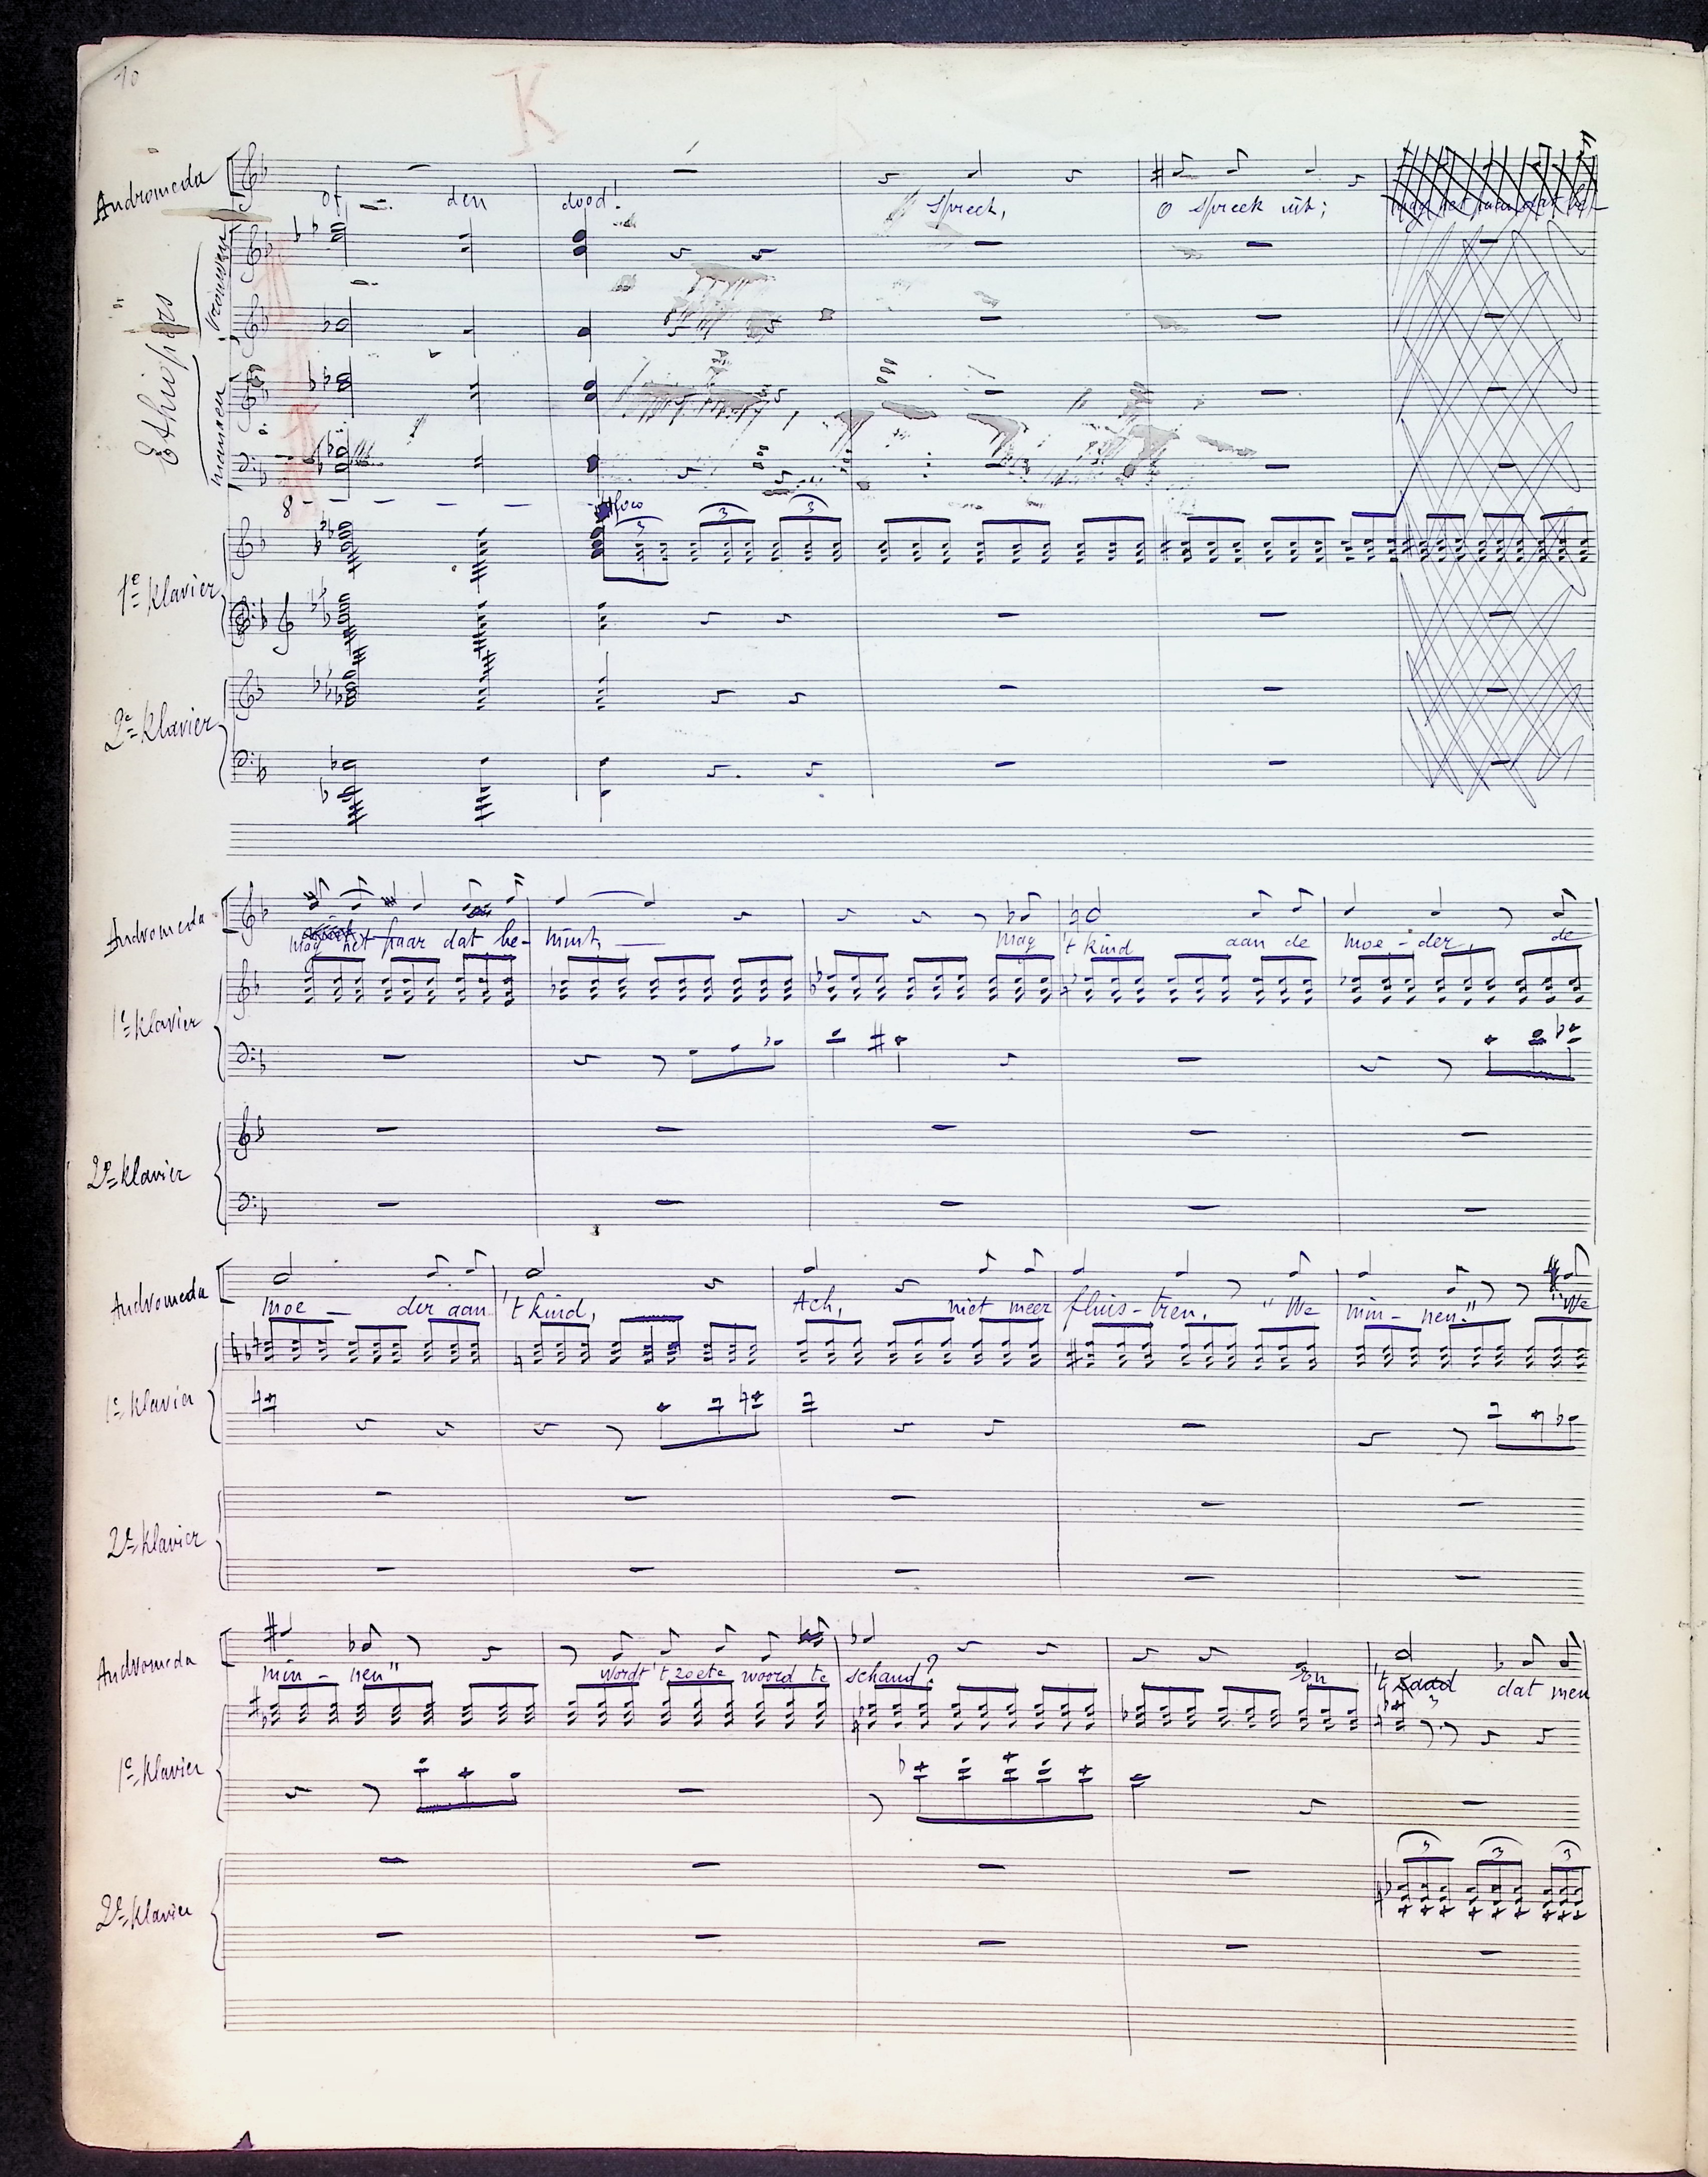 10
K
Andromeda
of den dood! Spreek, o spreek uit;
Ethiopiers
Vrouwen
mannen
8
loco
3 3 3
1e Klavier
2e Klavier
Andromeda
mag het paar dat be- mint, mag 't kind aan de moe - der, de
1e Klavier
2e Klavier
Andromeda
moe - der aan 't kind, Ach, niet meer fluis - tren, "We min - nen." "We
1e Klavier
2e Klavier
Andromeda
min - nen" wordt 't zoete woord te schand? 't dat men
3
1e Klavier
3 3 3
2e Klavier